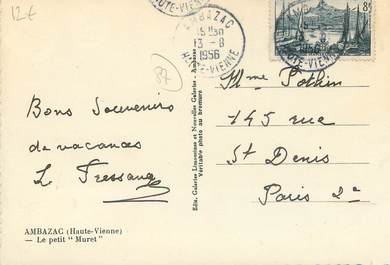 12€
AMBAZAC
15H30
13-8
1956
HAUTE-VIENNE
8F
87
Bons Souvenirs
de vacances
Mme Pothin
145 rue
St Denis
Paris 2e
Edit. Galeries Limousines et Nouvelles Galeries - Ambazac
Véritable photo au bromure
AMBAZAC (Haute-Vienne)
— Le petit "Muret"